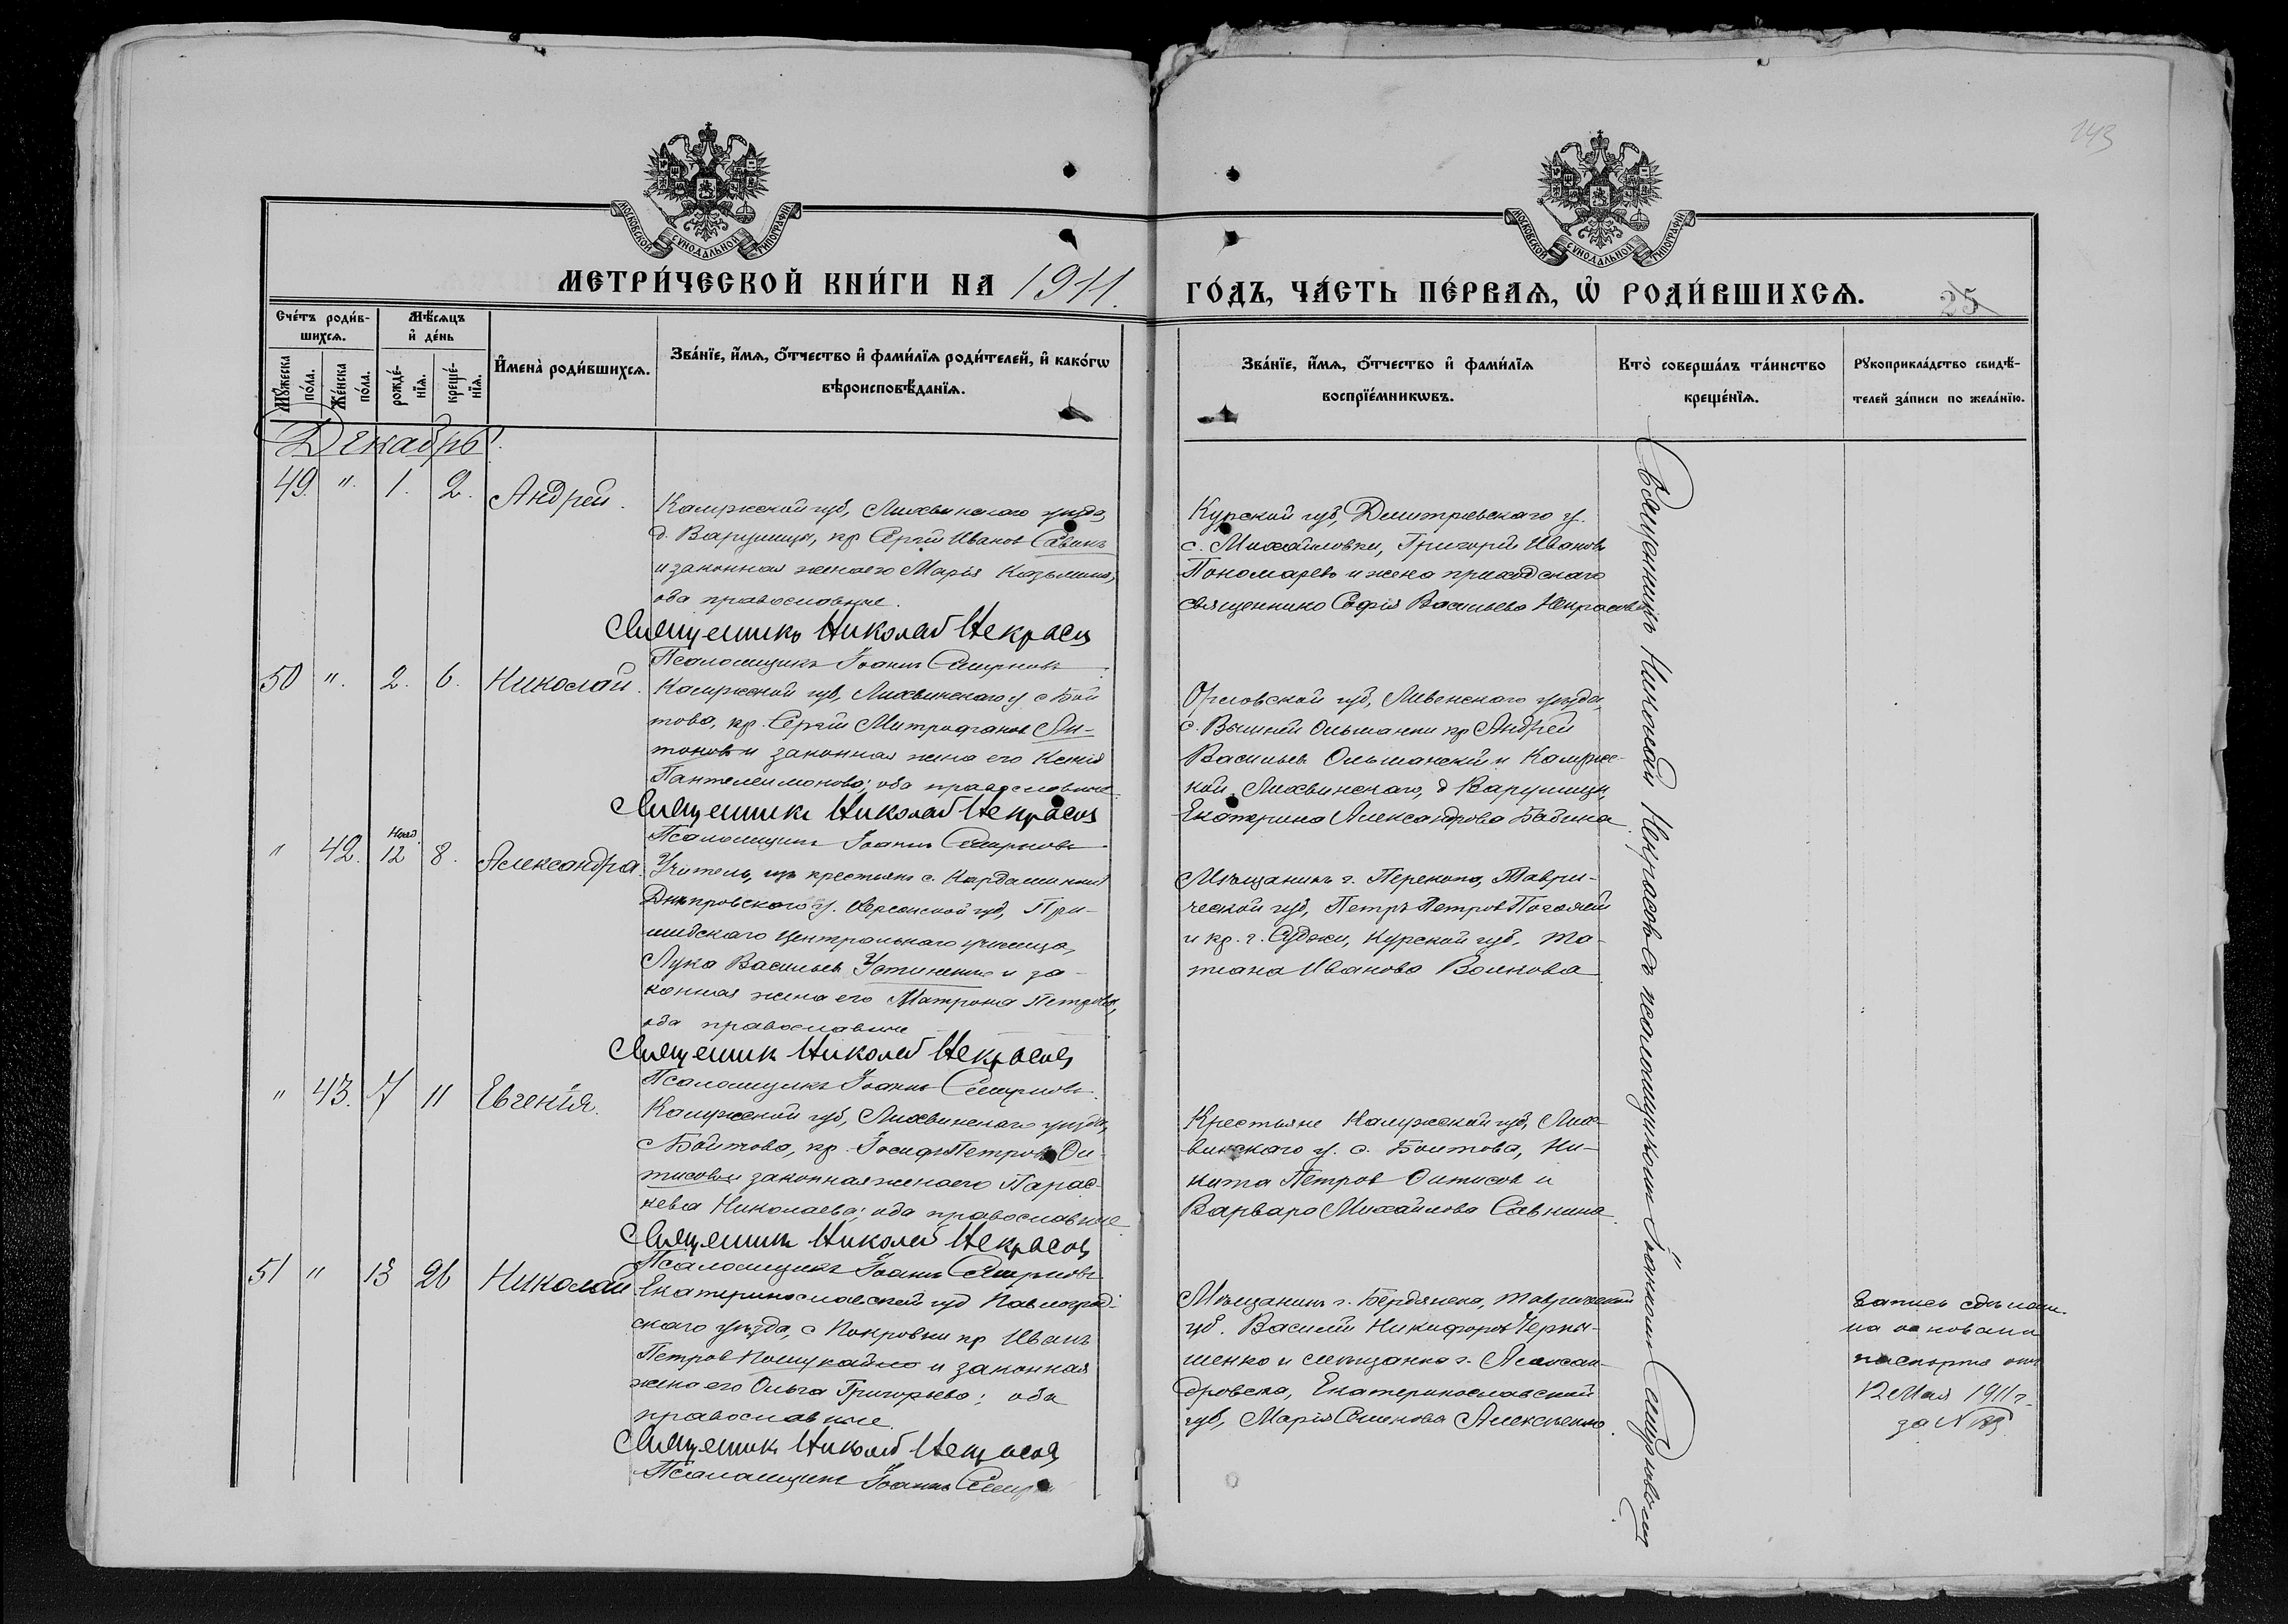 143
МОСКОВСКОЙ СѴНОДАЛЬНОЙ ТИПОГРАФІИ
МОСКОВСКОЙ СѴНОДАЛЬНОЙ ТИПОГРАФІИ
МЕТРИ́ЧЕСКОЙ КНИ́ГИ НА 1911.
ГО́ДЪ, ЧА́СТЬ ПЕ́РВАѦ, Ѡ҆ РОДИ́ВШИХСѦ.
25
Сче́тъ роди́в-
шихсѧ.
Мѣ́сѧцъ
и҆ де́нь
Мꙋ́жеска
по́ла.
Же́нска
по́ла.
рожде́-
нїѧ.
креще́-
нїѧ.
И҆мена̀ роди́вшихсѧ.
Зва́нїе, и҆́мѧ, ѻ҆́тчество и҆ фами́лїѧ роди́телей, и҆ како́гѡ
вѣроисповѣ́данїѧ.
Зва́нїе, и҆́мѧ, ѻ҆́тчество и҆ фами́лїѧ
воспрїе́мникѡвъ.
Кто̀ соверша́лъ та́инство
креще́нїѧ.
Рꙋкоприкла́дство свидѣ́-
телей за́писи по жела́нїю.
Декабрь.
49. " 1. 2. Андрей.
Калужской губ, Лихвинскаго уѣзда,
д. Варушицы, кр Сергій Иванов Савинъ
и законная жена его Марія Козьмина,
оба православные.
Священникъ Николай Некрасов
Псаломщикъ Іоаннъ Смирновъ
Курской губ, Дмитріевскаго у.
с. Михайловки, Григорій Ивановъ
Пономаревъ и жена приходскаго
священника Софія Васильева Некрасова
50 " 2. 6. Николай.
Калужской губ, Лихвинскаго у с Бой
това, кр. Сергій Митрофанов Ан-
тонов и законная жена его Ксенія
Пантелеимонова; оба православные
Священникъ Николай Некрасов
Псаломщикъ Іоаннъ Смирновъ
Орловской губ, Ливенскаго уѣзда,
с. Вышней Ольшанки кр Андрей
Васильев Ольшанскій и Калужс-
кой, Лихвинскаго, д Варушицы,
Екатерина Александрова Бабина
" 42. Нояб 12 8. Александра.
Учитель, изъ крестьян с. Кардашинки
Днѣпровскаго у. Херсонской губ, При-
шибскаго Центральнаго училища,
Лука Васильев Устименко и за-
конная жена его Матрона Петрова,
оба православные
Священник Николай Некрасов
Псаломщикъ Іоаннъ Смирновъ
Мѣщанинъ г. Перекопа, Таври-
ческой губ, Петръ Петров
и кр. г. Суджи, Курской губ. Та-
тіана Иванова Волкова
" 43. 7 11 Евгенія.
Калужской губ, Лихвинскаго уѣзда,
с Бойтова, кр. Іосифъ Петров Он-
тисов и законная жена его Парас-
кева Николаева; оба православные
Священник Николай Некрасов
Псаломщикъ Іоаннъ Смирновъ
Крестьяне Калужской губ, Лих-
винскаго у. с. Боитова, Ни-
кита Петров Онтисов и
Варвара Михайлова Савкина
51 " 13 26 Николай
Екатеринославской губ Павлоград-
скаго уѣзда, с Покровки кр Иванъ
Петров и законная
жена его Ольга Григорьева; оба
православные.
Священник Николай Некрасов
Псаломщикъ Іоаннъ Смирн
Мѣщанинъ г. Бердянска, Таврической
губ. Василій Никифоров Черны-
шенко и мѣщанка г. Алексан-
дровска, Екатеринославской
губ, Марія Семенова Алексѣенко.
Запись сдѣлана
на основаніи
паспорта отъ
12 Мая 1911 г.
за №
Священникъ Николай Некрасовъ съ псаломщикомъ Іоанномъ Смирновымъ